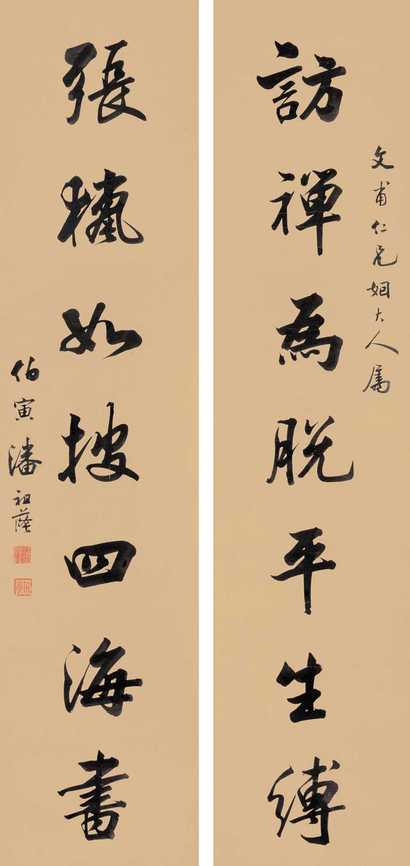 文甫仁兄姻大人屬
訪禪為脫平生縛
張如搜四海書
伯寅潘祖蔭